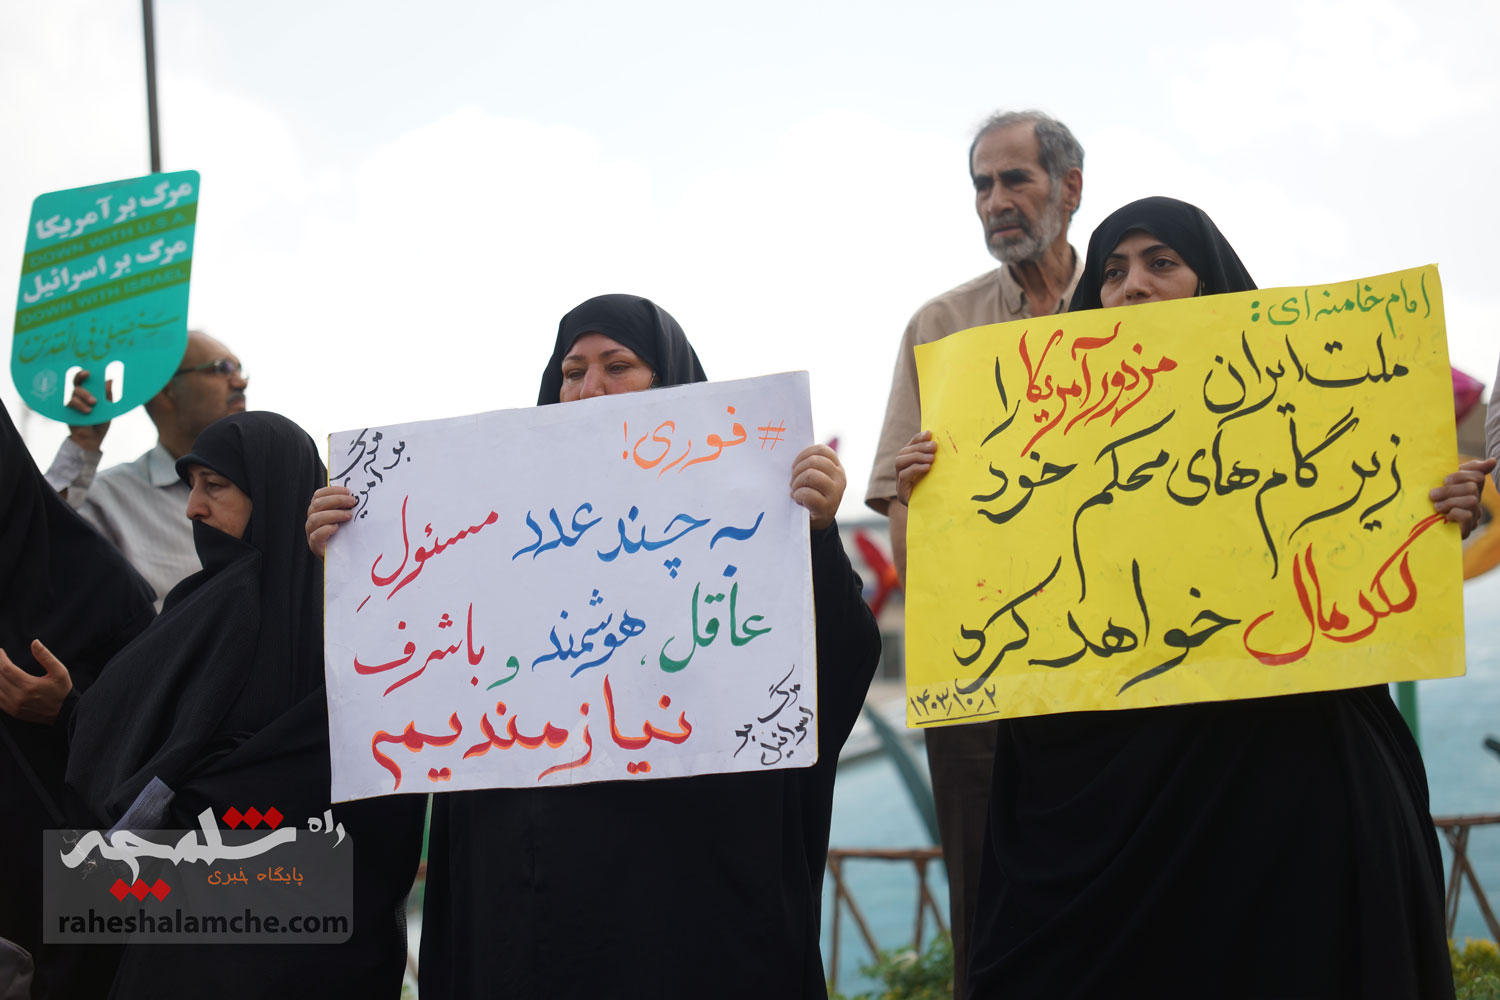 مرگ بر آمریکا
DOWN WITH U.S.A
مرگ بر اسرائیل
DOWN WITH ISRAEL
سنصلی فی القدس
#فوری!
مرگ
بر آمریکا
به چند عدد مسئولِ
عاقل، هوشمند و باشرف
نیازمندیم
مرگ
بر اسرائیل
امام خامنه ای:
ملت ایران مزدور آمریکا را
زیر گام های محکم خود
لگدمال خواهد کرد
۱۴۰۳٫۱۰٫۲
راه شلمچه
پایگاه خبری
raheshalamche.com